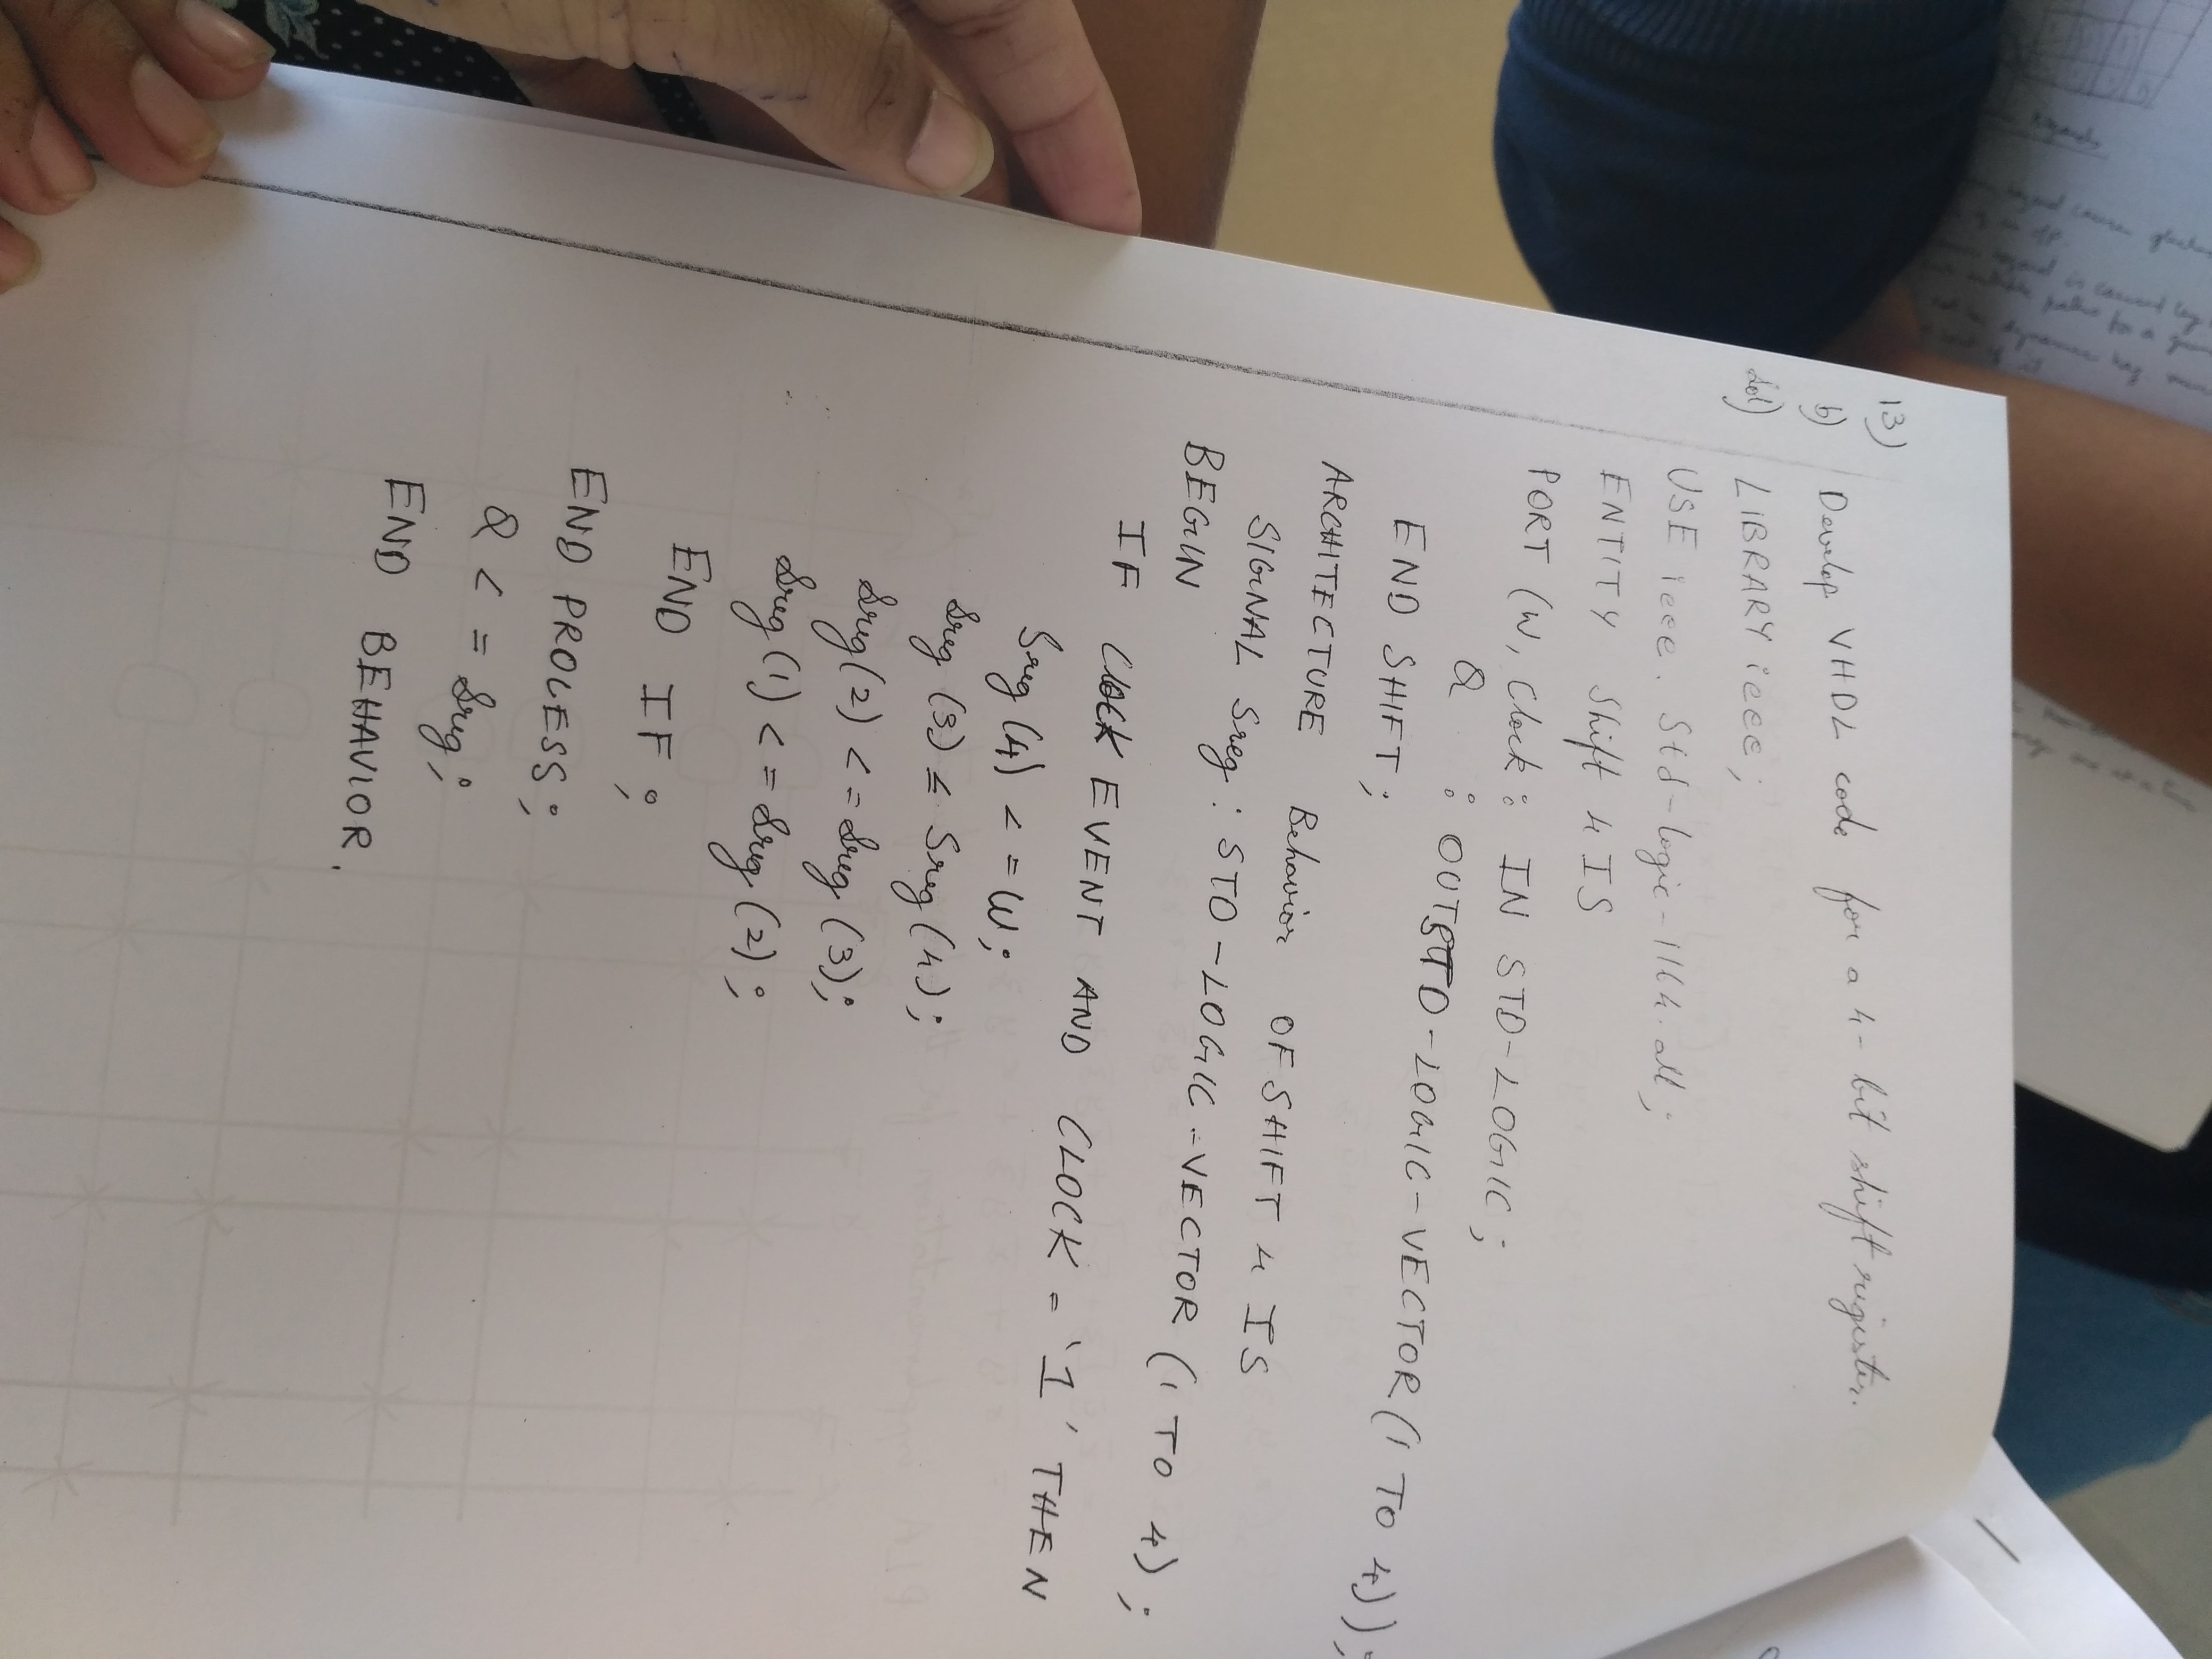 13)
b) Develop VHDL code for a 4-bit shift register.
sol) LIBRARY ieee;
USE ieee. Std-logic-1164.all;
ENTITY Shift 4 IS
PORT (W, Clock : IN STD-LOGIC;
Q : OUT STD-LOGIC-VECTOR (1 TO 4));
END SHIFT;
ARCHITECTURE Behavior OF SHIFT 4 IS
SIGNAL Sreg : STD-LOGIC-VECTOR (1 TO 4);
BEGIN
IF CLOCK EVENT AND CLOCK = '1' THEN
Sreg (4) <= W;
Sreg (3) ≤ Sreg (4);
Sreg (2) <= Sreg (3);
Sreg (1) <= Sreg (2);
END IF;
END PROCESS;
Q <= Sreg;
END BEHAVIOR.